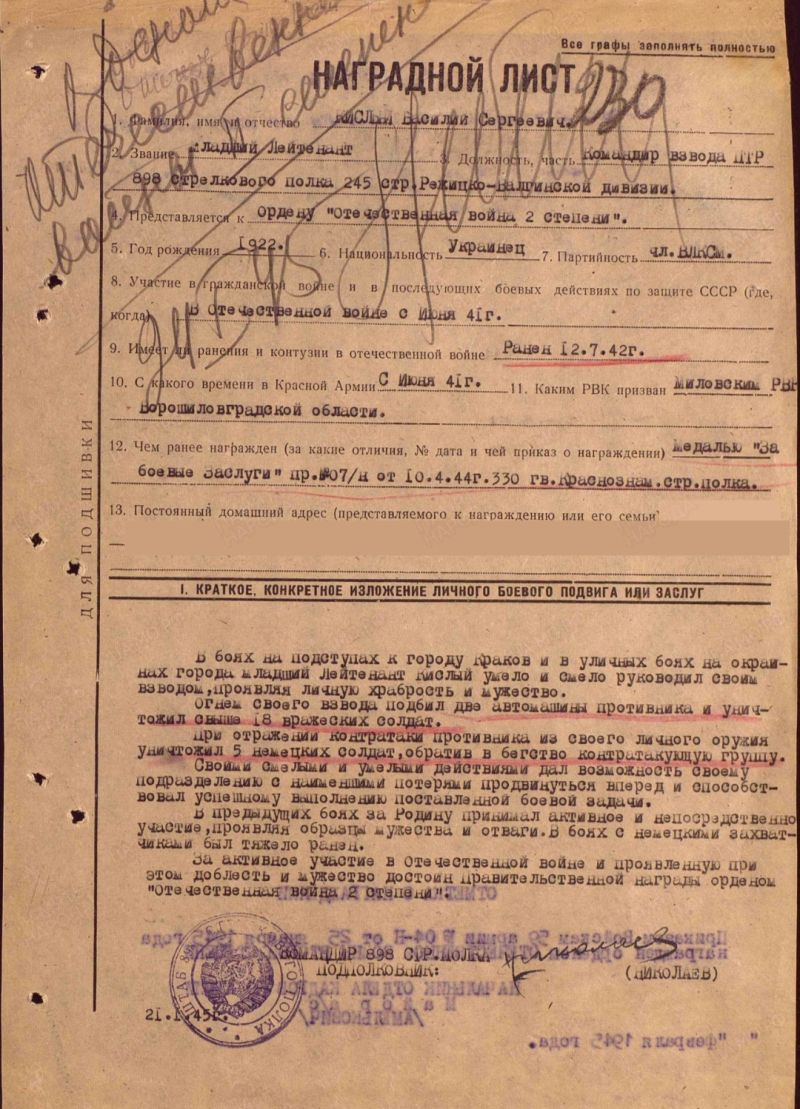 Все графы заполнять полностью
НАГРАДНОЙ ЛИСТ 230
1. Фамилия, имя и отчество КИСЛЫЙ Василий Сергеевич.
2. Звание Младший Лейтенант 3. Должность, часть Командир взвода ПТР
898 стрелкового полка 245 стр.Режицко-Валгинской дивизии.
4. Представляется к Ордену "Отечественная война 2 степени".
5. Год рождения 1922. 6. Национальность Украинец 7. Партийность чл.ВЛКСМ.
8. Участие в гражданской войне и в последующих боевых действиях по защите СССР (где,
когда) В Отечественной войне с Июня 41г.
9. Имеет ли ранения и контузии в отечественной войне Ранен 12.7.42г.
10. С какого времени в Красной Армии С Июня 41г. 11. Каким РВК призван Миловским РВК
Ворошиловградской области.
12. Чем ранее награжден (за какие отличия, № дата и чей приказ о награждении) Медалью "За
боевые Заслуги" пр.№07/н от 10.4.44г.330 гв.Краснознам.стр.полка.
13. Постоянный домашний адрес (представляемого к награждению или его семьи
ДЛЯ ПОДШИВКИ
I. КРАТКОЕ, КОНКРЕТНОЕ ИЗЛОЖЕНИЕ ЛИЧНОГО БОЕВОГО ПОДВИГА ИЛИ ЗАСЛУГ
В боях на подступах к городу Краков и в уличных боях на окраи-
нах города младший Лейтенант Кислый умело и смело руководил своим
взводом,проявляя личную храбрость и мужество.
Огнем своего взвода подбил две автомашины противника и унич-
тожил свыше 18 вражеских солдат.
При отражении контратаки противника из своего личного оружия
уничтожил 5 немецких солдат,обратив в бегство контратакующую группу.
Своими смелыми и умелыми действиями дал возможность своему
подразделению с наименшими потерями продвинуться вперед и способст-
вовал успешному выполнению поставленной боевой задачи.
В предыдущих боях за Родину принимал активное и непосредственно
участие,проявляя образцы мужества и отваги.В боях с немецкими захват-
чиками был тяжело ранен.
За активное участие в Отечественной войне и проявленную при
этом доблесть и мужество достоин правительственной награды орденом
"Отечественная война 2 степени".
КОМАНДИР 898 СТР.ПОЛКА
ПОДПОЛКОВНИК: (НИКОЛАЕВ)
21.1.45г.
" " февраля 1945 года.